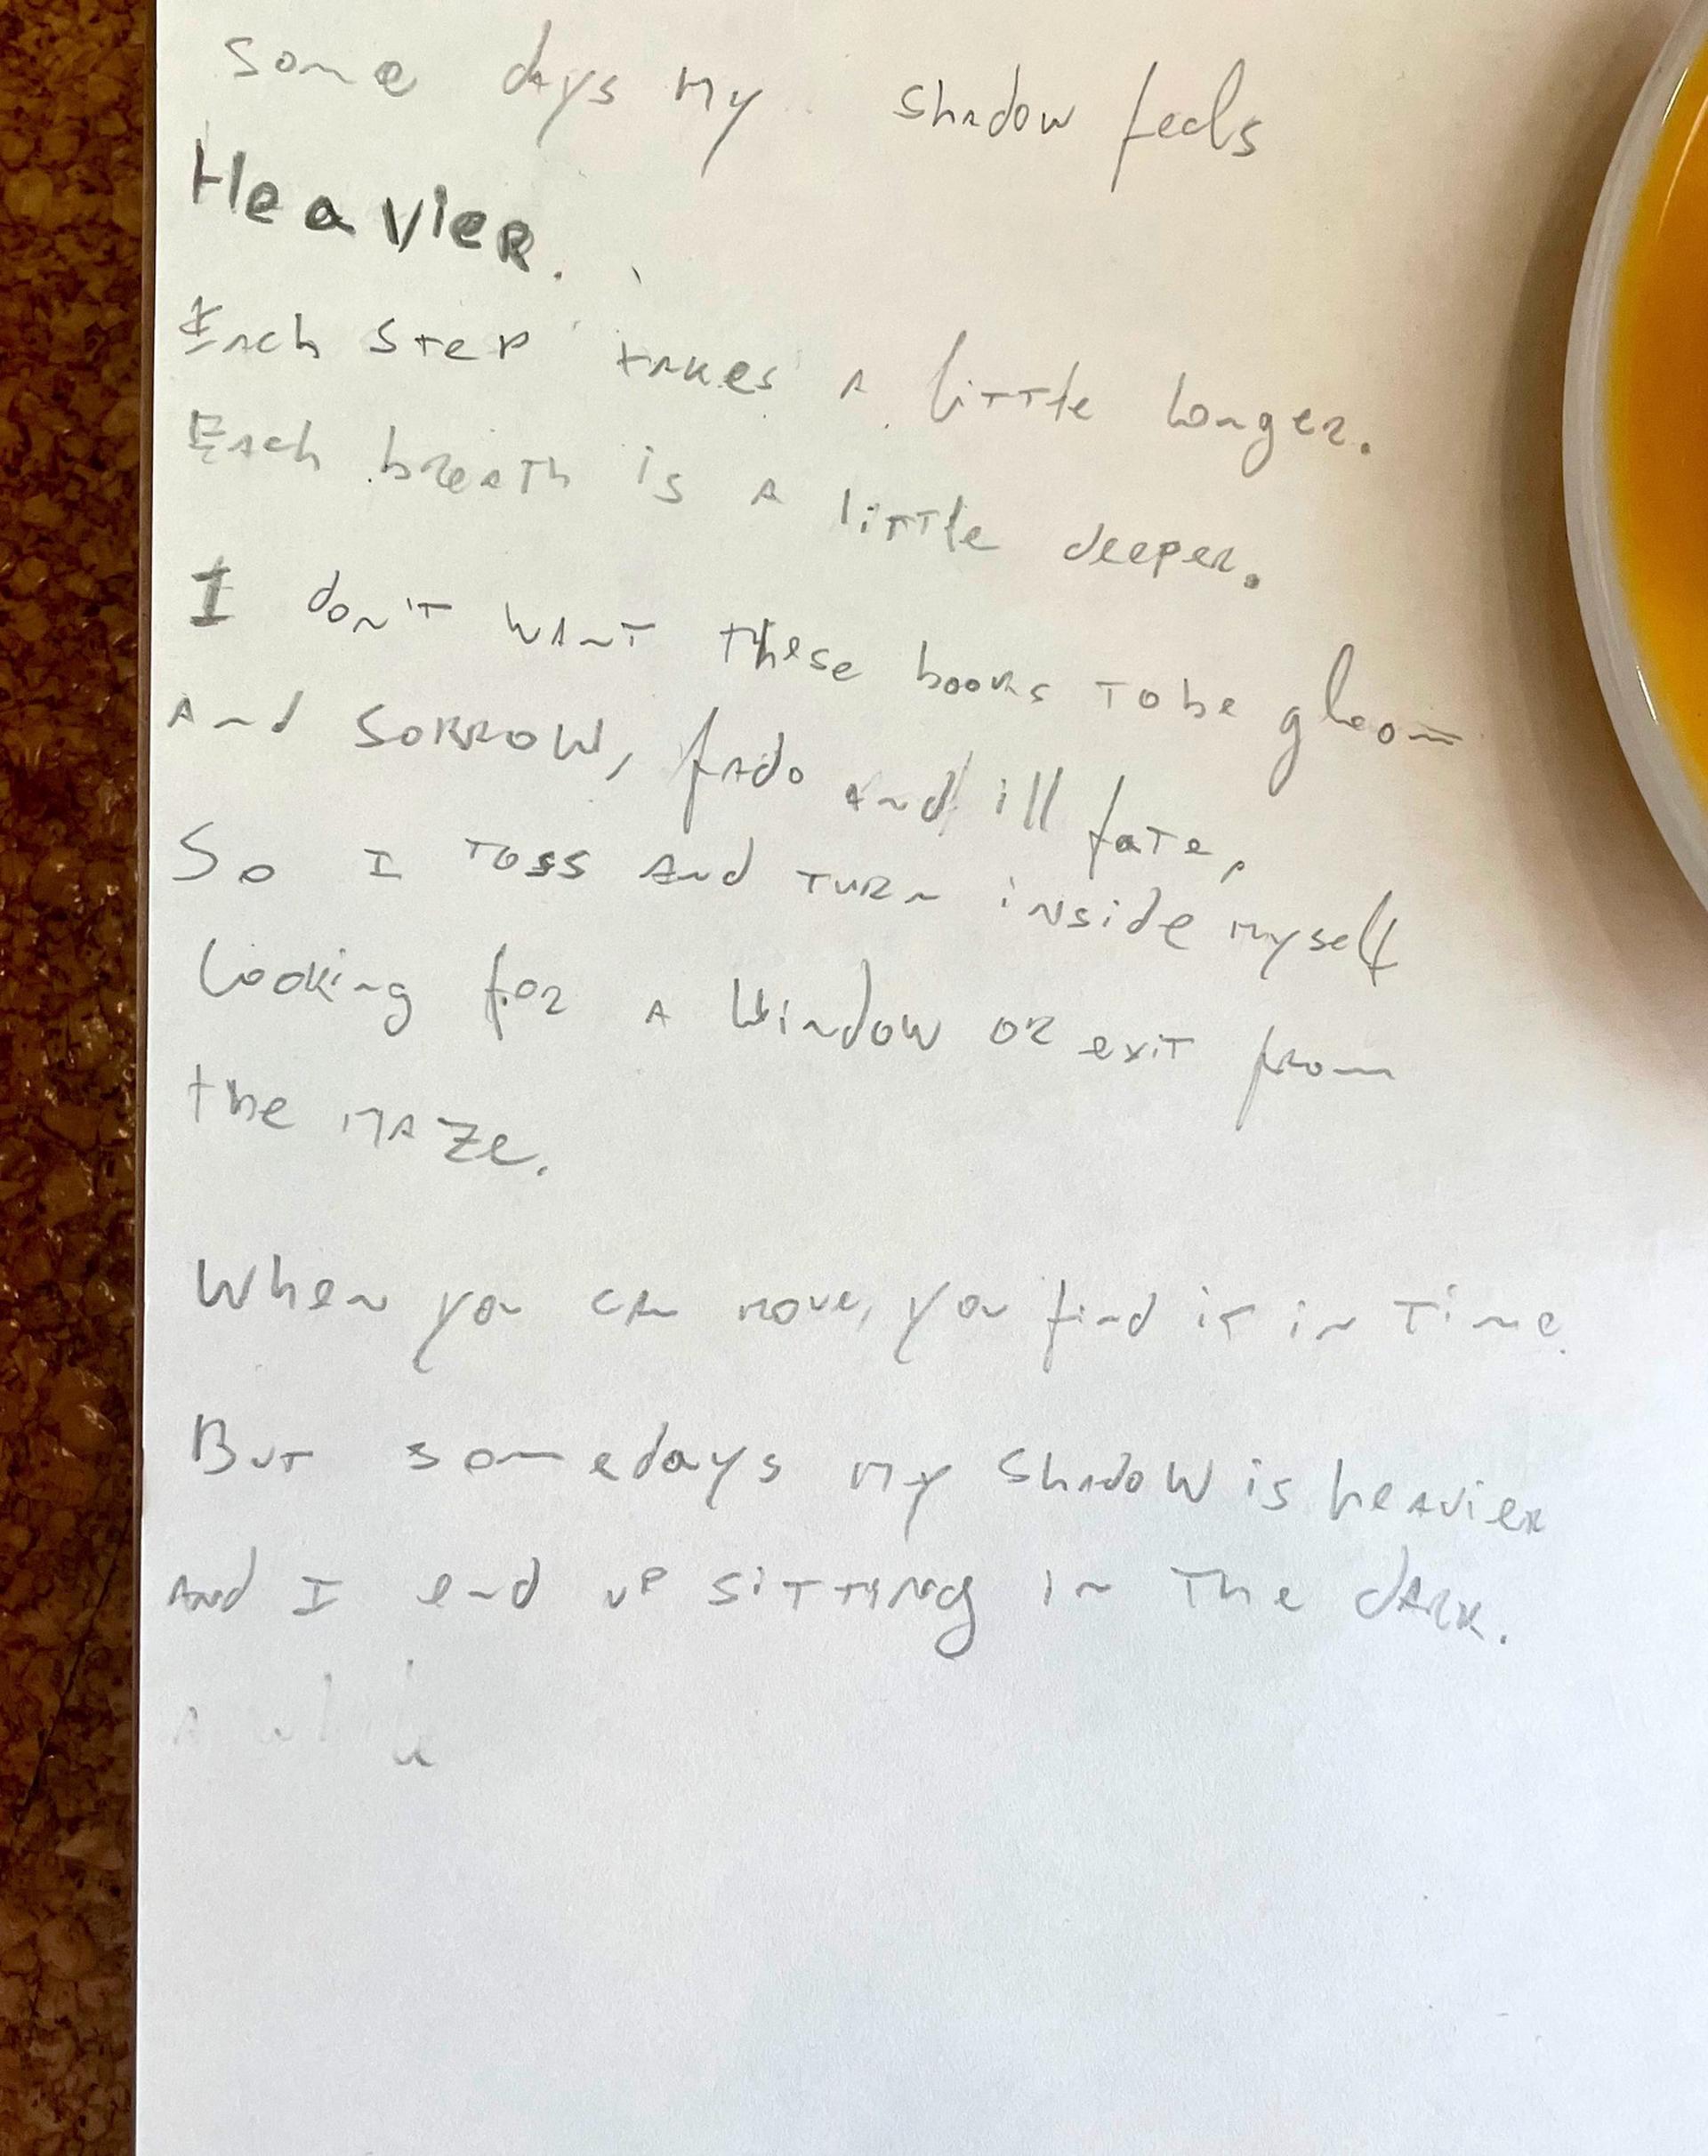 Some days my shadow feels
Heavier.
Each step takes a little longer.
Each breath is a little deeper.
I don't want these books to be gloom
and sorrow, fado and ill fate,
So I toss and turn inside myself
looking for a window or exit from
the maze.
When you can move, you find it in time.
But somedays my shadow is heavier
And I end up sitting in the dark.